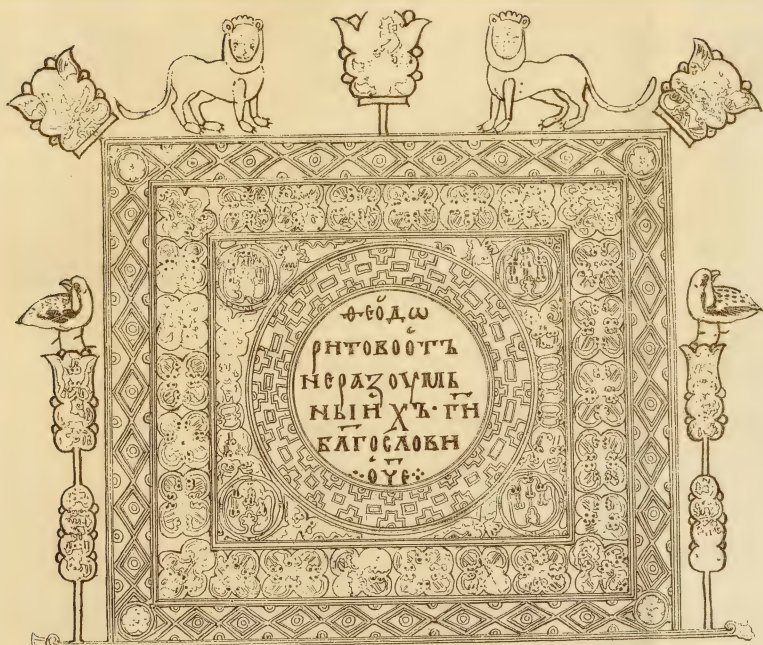 ѳео́дѡ
ритовоо́тъ
неразоумь
ныи хъ· г҃и
бл҃гослови
·:о́ч҃е:·